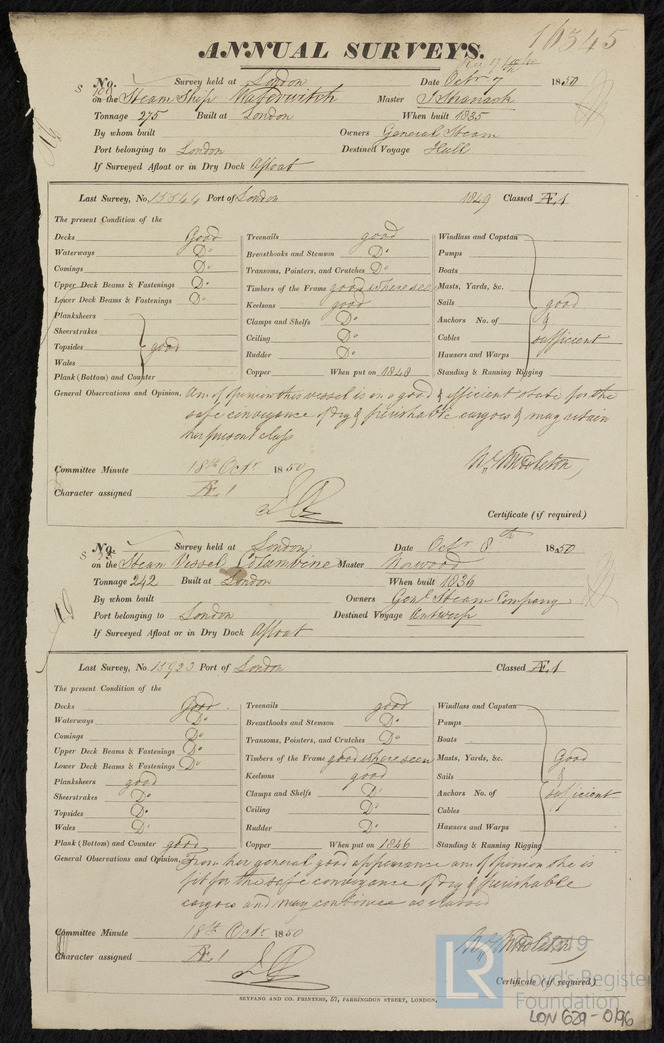 16345
ANNUAL SURVEYS.
No. Survey held at London Date Octr 7 1850
on the Steam Ship Waterwitch Master
Tonnage 275 Built at London When built 1835
By whom built Owners General Steam
Port belonging to London Destined Voyage Hull
If Surveyed Afloat or in Dry Dock Afloat
Last Survey, No. Port of London 1849 Classed Æ1
The present Condition of the
Decks Good Treenails good Windlass and Capstan
Waterways Do Breasthooks and Stemson Do Pumps
Comings Do Transoms, Pointers, and Crutches Do Boats
Upper Deck Beams & Fastenings Do Timbers of the Frame good where seen Masts, Yards, &c.
Lower Deck Beams & Fastenings Do Keelsons good Sails good
Planksheers Clamps and Shelfs Do Anchors No. of &
Sheerstrakes Ceiling Do Cables sufficient
Topsides good Rudder Do Hawsers and Warps
Wales Copper When put on 1848 Standing & Running Rigging
Plank (Bottom) and Counter
General Observations and Opinion, Am of opinion this vessel is in a good & efficient state for the
safe conveyance of dry & perishable cargoes & may retain
her present class
Wm Middleton
Committee Minute 18th Octr 1850
Character assigned Æ1
Certificate (if required)
No. Survey held at London Date Octr 8th 1850
on the Steam Vessel Columbine Master Norwood
Tonnage 242 Built at London When built 1836
By whom built Owners Genl Steam Company
Port belonging to London Destined Voyage Antwerp
If Surveyed Afloat or in Dry Dock Afloat
Last Survey, No. 15923 Port of London Classed Æ1
The present Condition of the
Decks Good Treenails good Windlass and Capstan
Waterways Do Breasthooks and Stemson Do Pumps
Comings Do Transoms, Pointers, and Crutches Do Boats
Upper Deck Beams & Fastenings Do Timbers of the Frame good where seen Masts, Yards, &c. Good
Lower Deck Beams & Fastenings Do Keelsons good Sails &
Planksheers good Clamps and Shelfs Do Anchors No. of sufficient
Sheerstrakes Do Ceiling Do Cables
Topsides Do Rudder Do Hawsers and Warps
Wales Do Copper When put on 1846 Standing & Running Rigging
Plank (Bottom) and Counter good
General Observations and Opinion, From her general good appearance am of opinion she is
fit for the safe conveyance of dry & perishable
cargoes and may continue as classed
Wm Middleton
Committee Minute 18th Octr 1850
Character assigned Æ1
Certificate (if required)
SEYFANG AND CO. PRINTERS, 57, FARRINGDON STREET, LONDON.
LR
2019
Lloyd's Register
Foundation
LON 629-0196